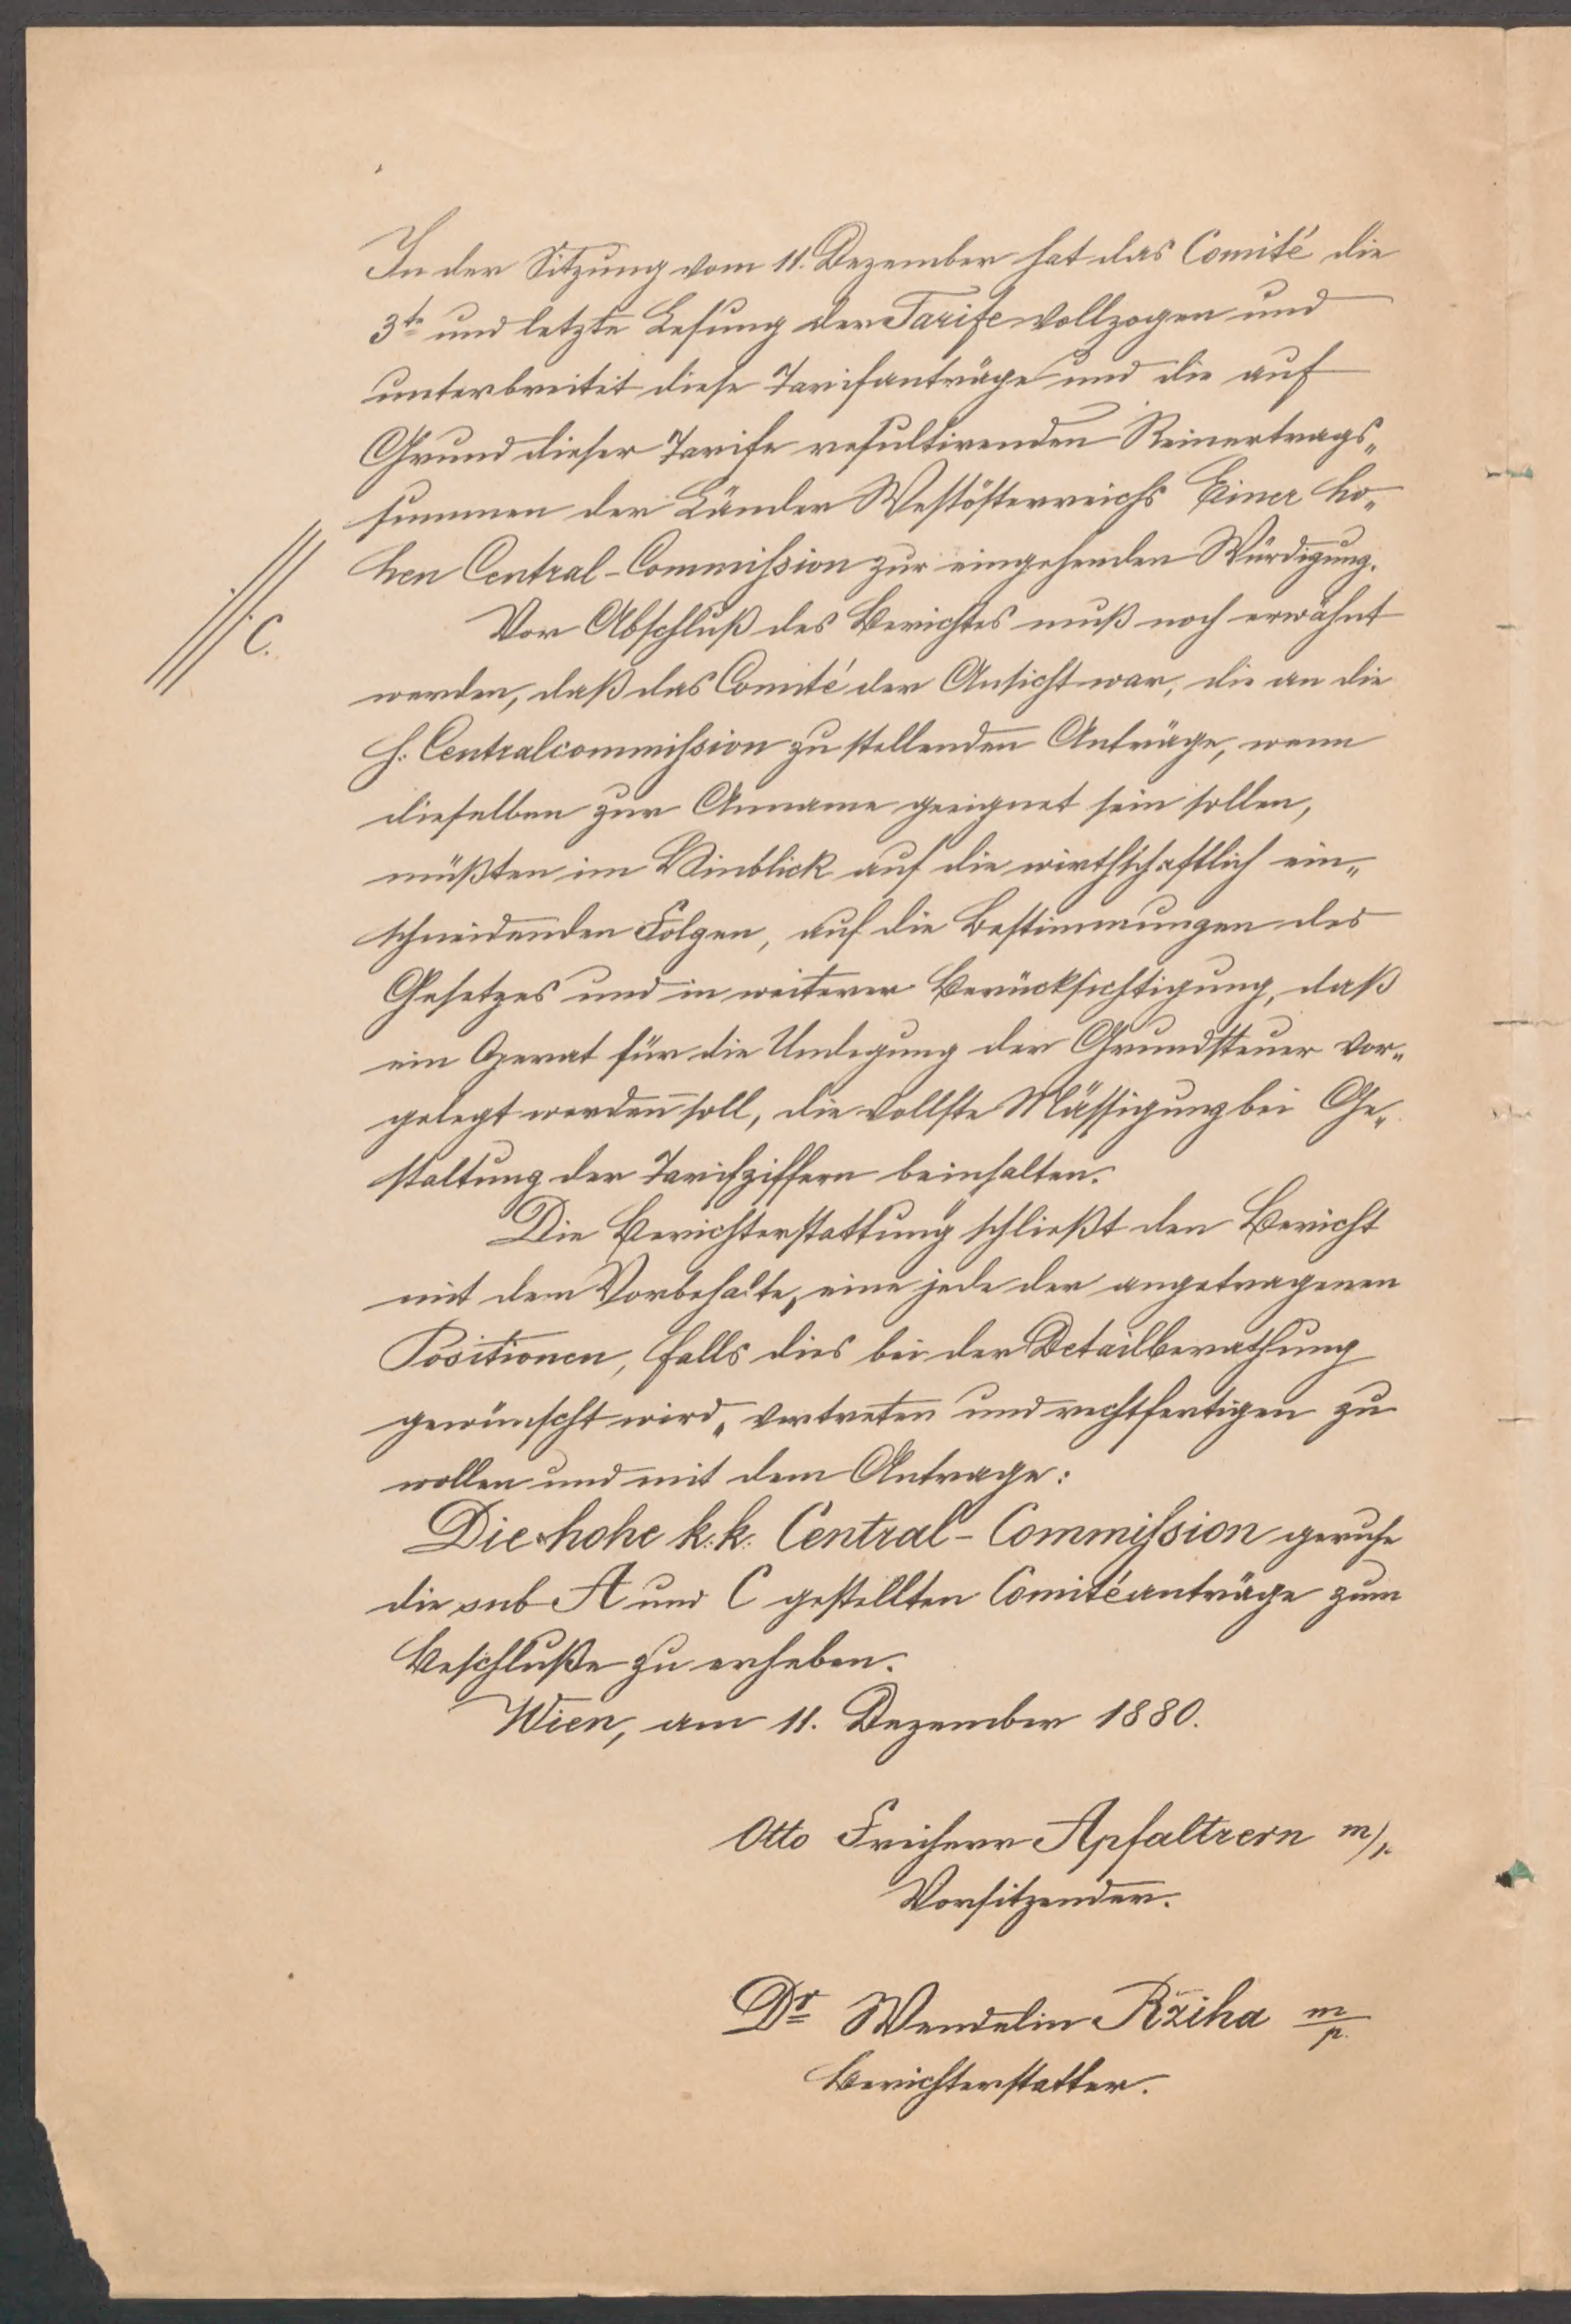 In der Sitzung vom 11. Dezember hat das Comité die
3te und letzte Lesung der Tarife vollzogen und
unterbreitet diese Tarifanträge und die auf
Grund dieser Tarife resultirenden Reinertrags„
summen der Länder Westösterreichs Einer ho„
hen Central-Commission zur eingehenden Würdigung.
C.
Vor Abschluß des Berichtes muß noch erwähnt
werden, daß das Comité der Ansicht war, die an die
h. Centralcommission zu stellenden Anträge, wenn
dieselben zur Anname geeignet sein sollen,
müßten im Hinblick auf die wirthschaftlich ein„
schneidenden Folgen, auf die Bestimmungen des
Gesetzes und in weiterer Berücksichtigung, daß
ein Operat für die Umlegung der Grundsteuer vor„
gelegt werden soll, die vollste Mässigung bei Ge„
staltung der Tarifziffern beinhalten.
Die Berichterstattung schließt den Bericht
mit dem Vorbehalte, eine jede der angetragenen
Positionen, falls dies bei der Detailberathung
gewünscht wird, vertreten und rechtfertigen zu
wollen und mit dem Antrage:
Die hohe k. k. Central-Commission geruhe
die sub A und C gestellten Comitéanträge zum
Beschluße zu erheben.
Wien, am 11. Dezember 1880.
Otto Freiherr Apfaltrern m/p.
Vorsitzender.
Dr Wendelin Rziha m/p.
Berichterstatter.